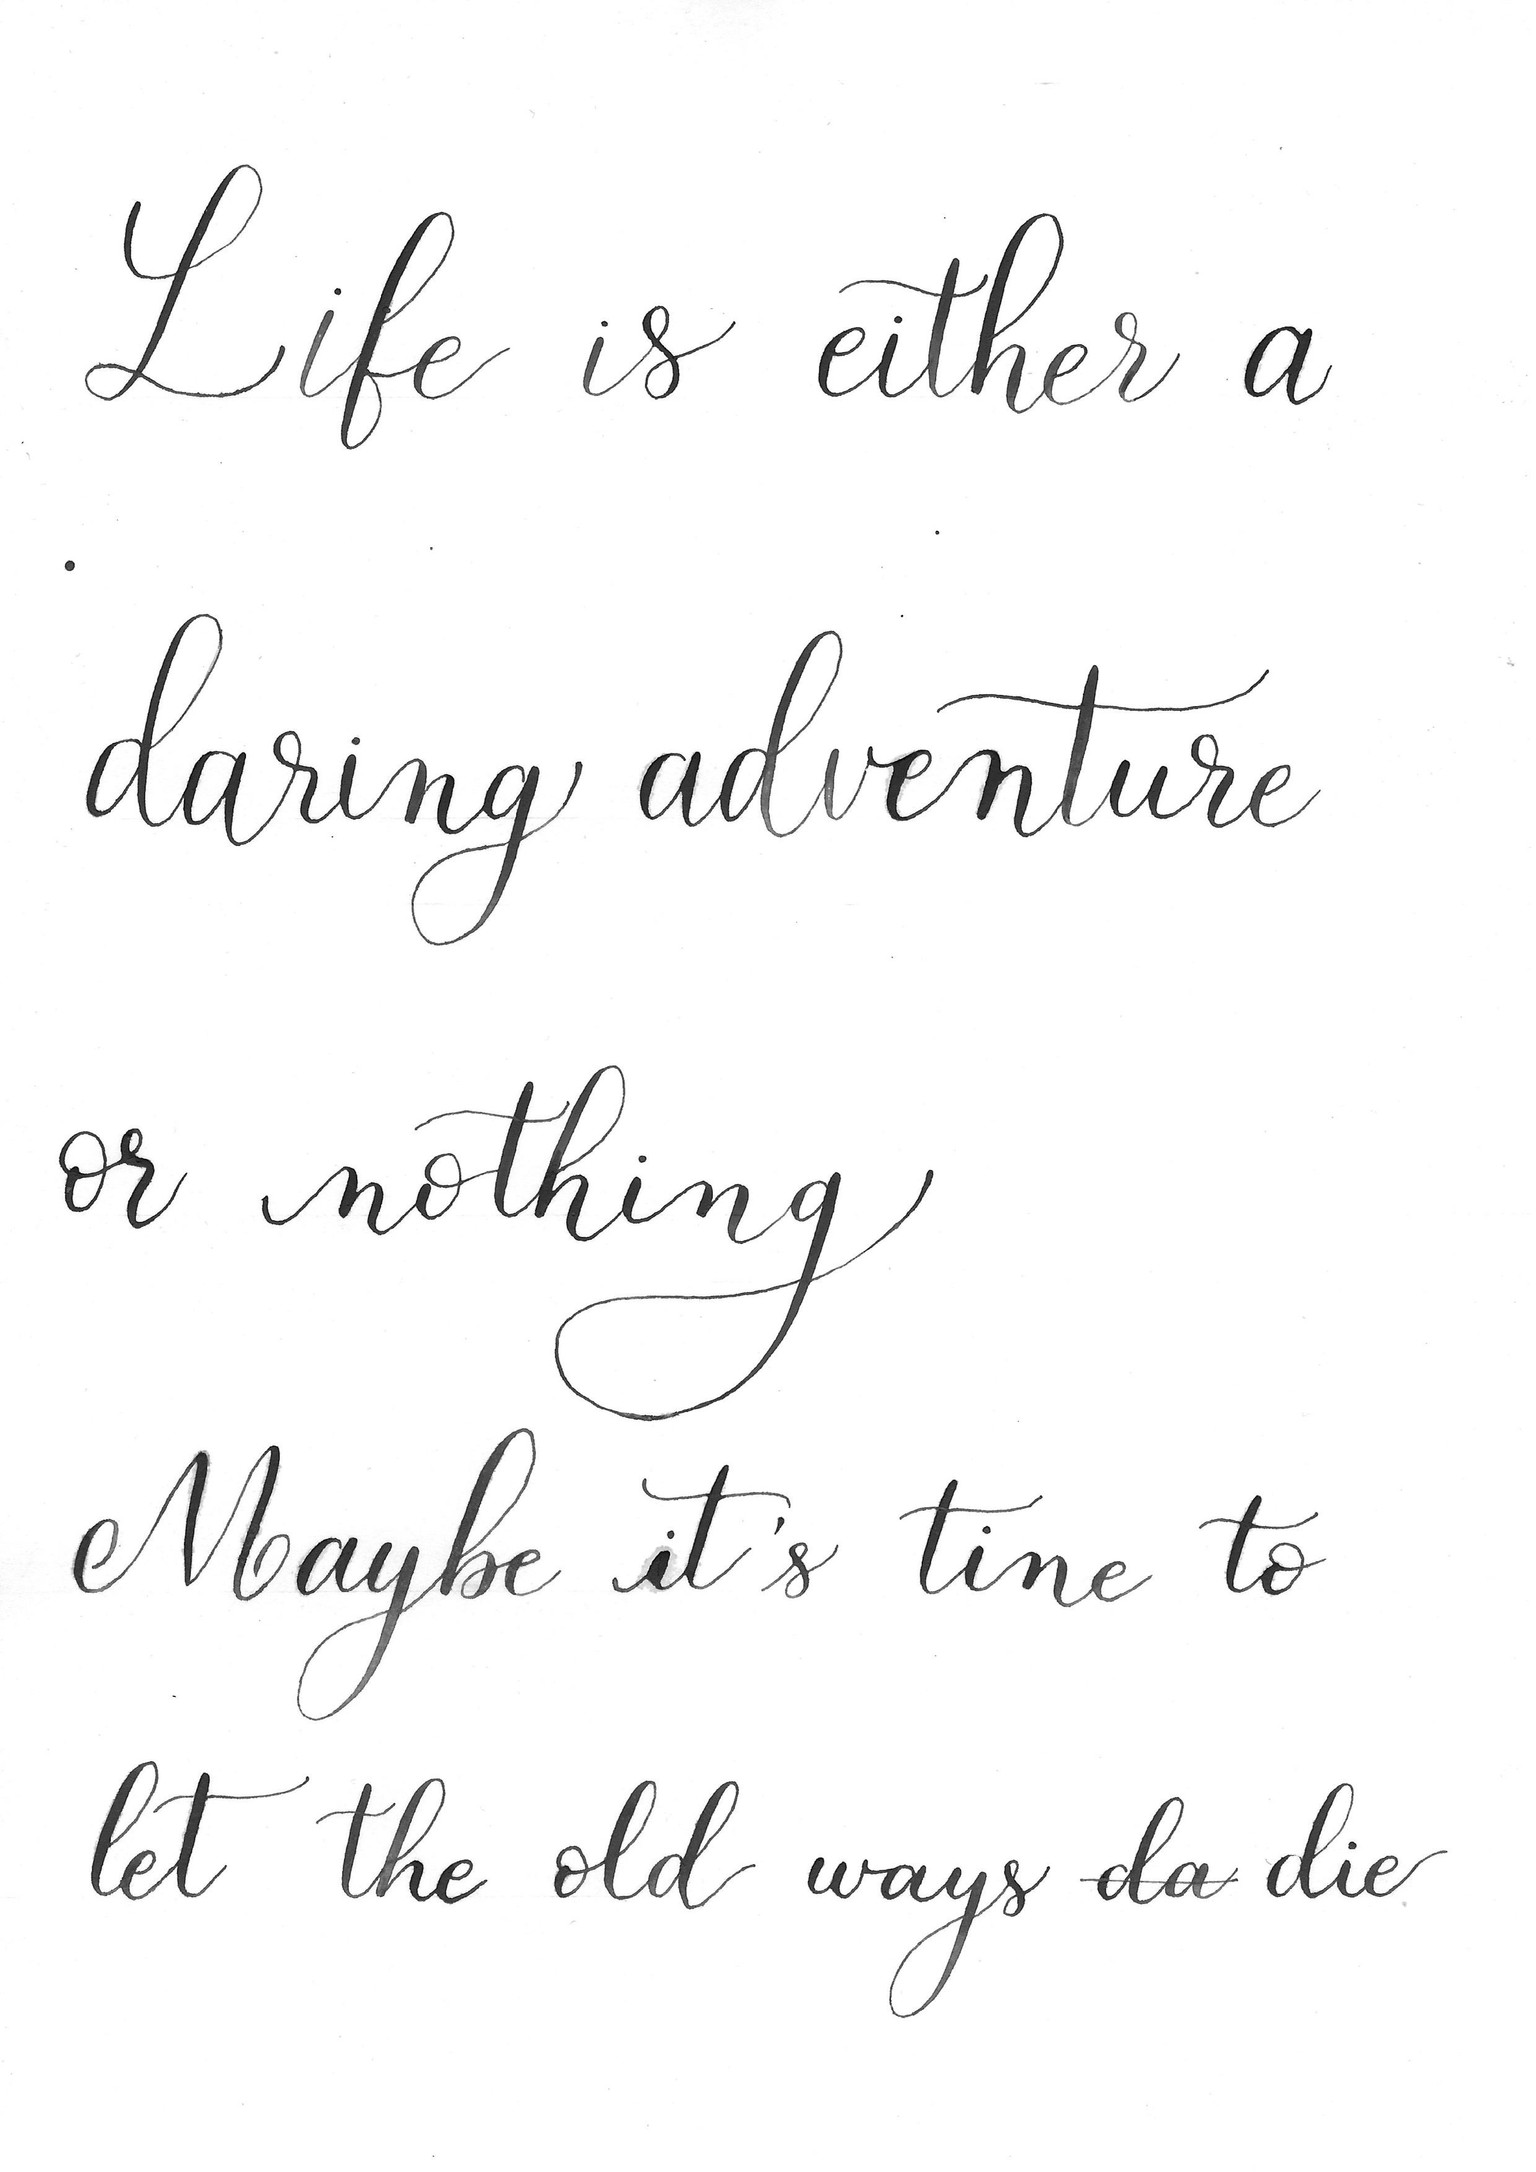 Life is either a
daring adventure
or nothing
Maybe it's tine to
let the old ways da die